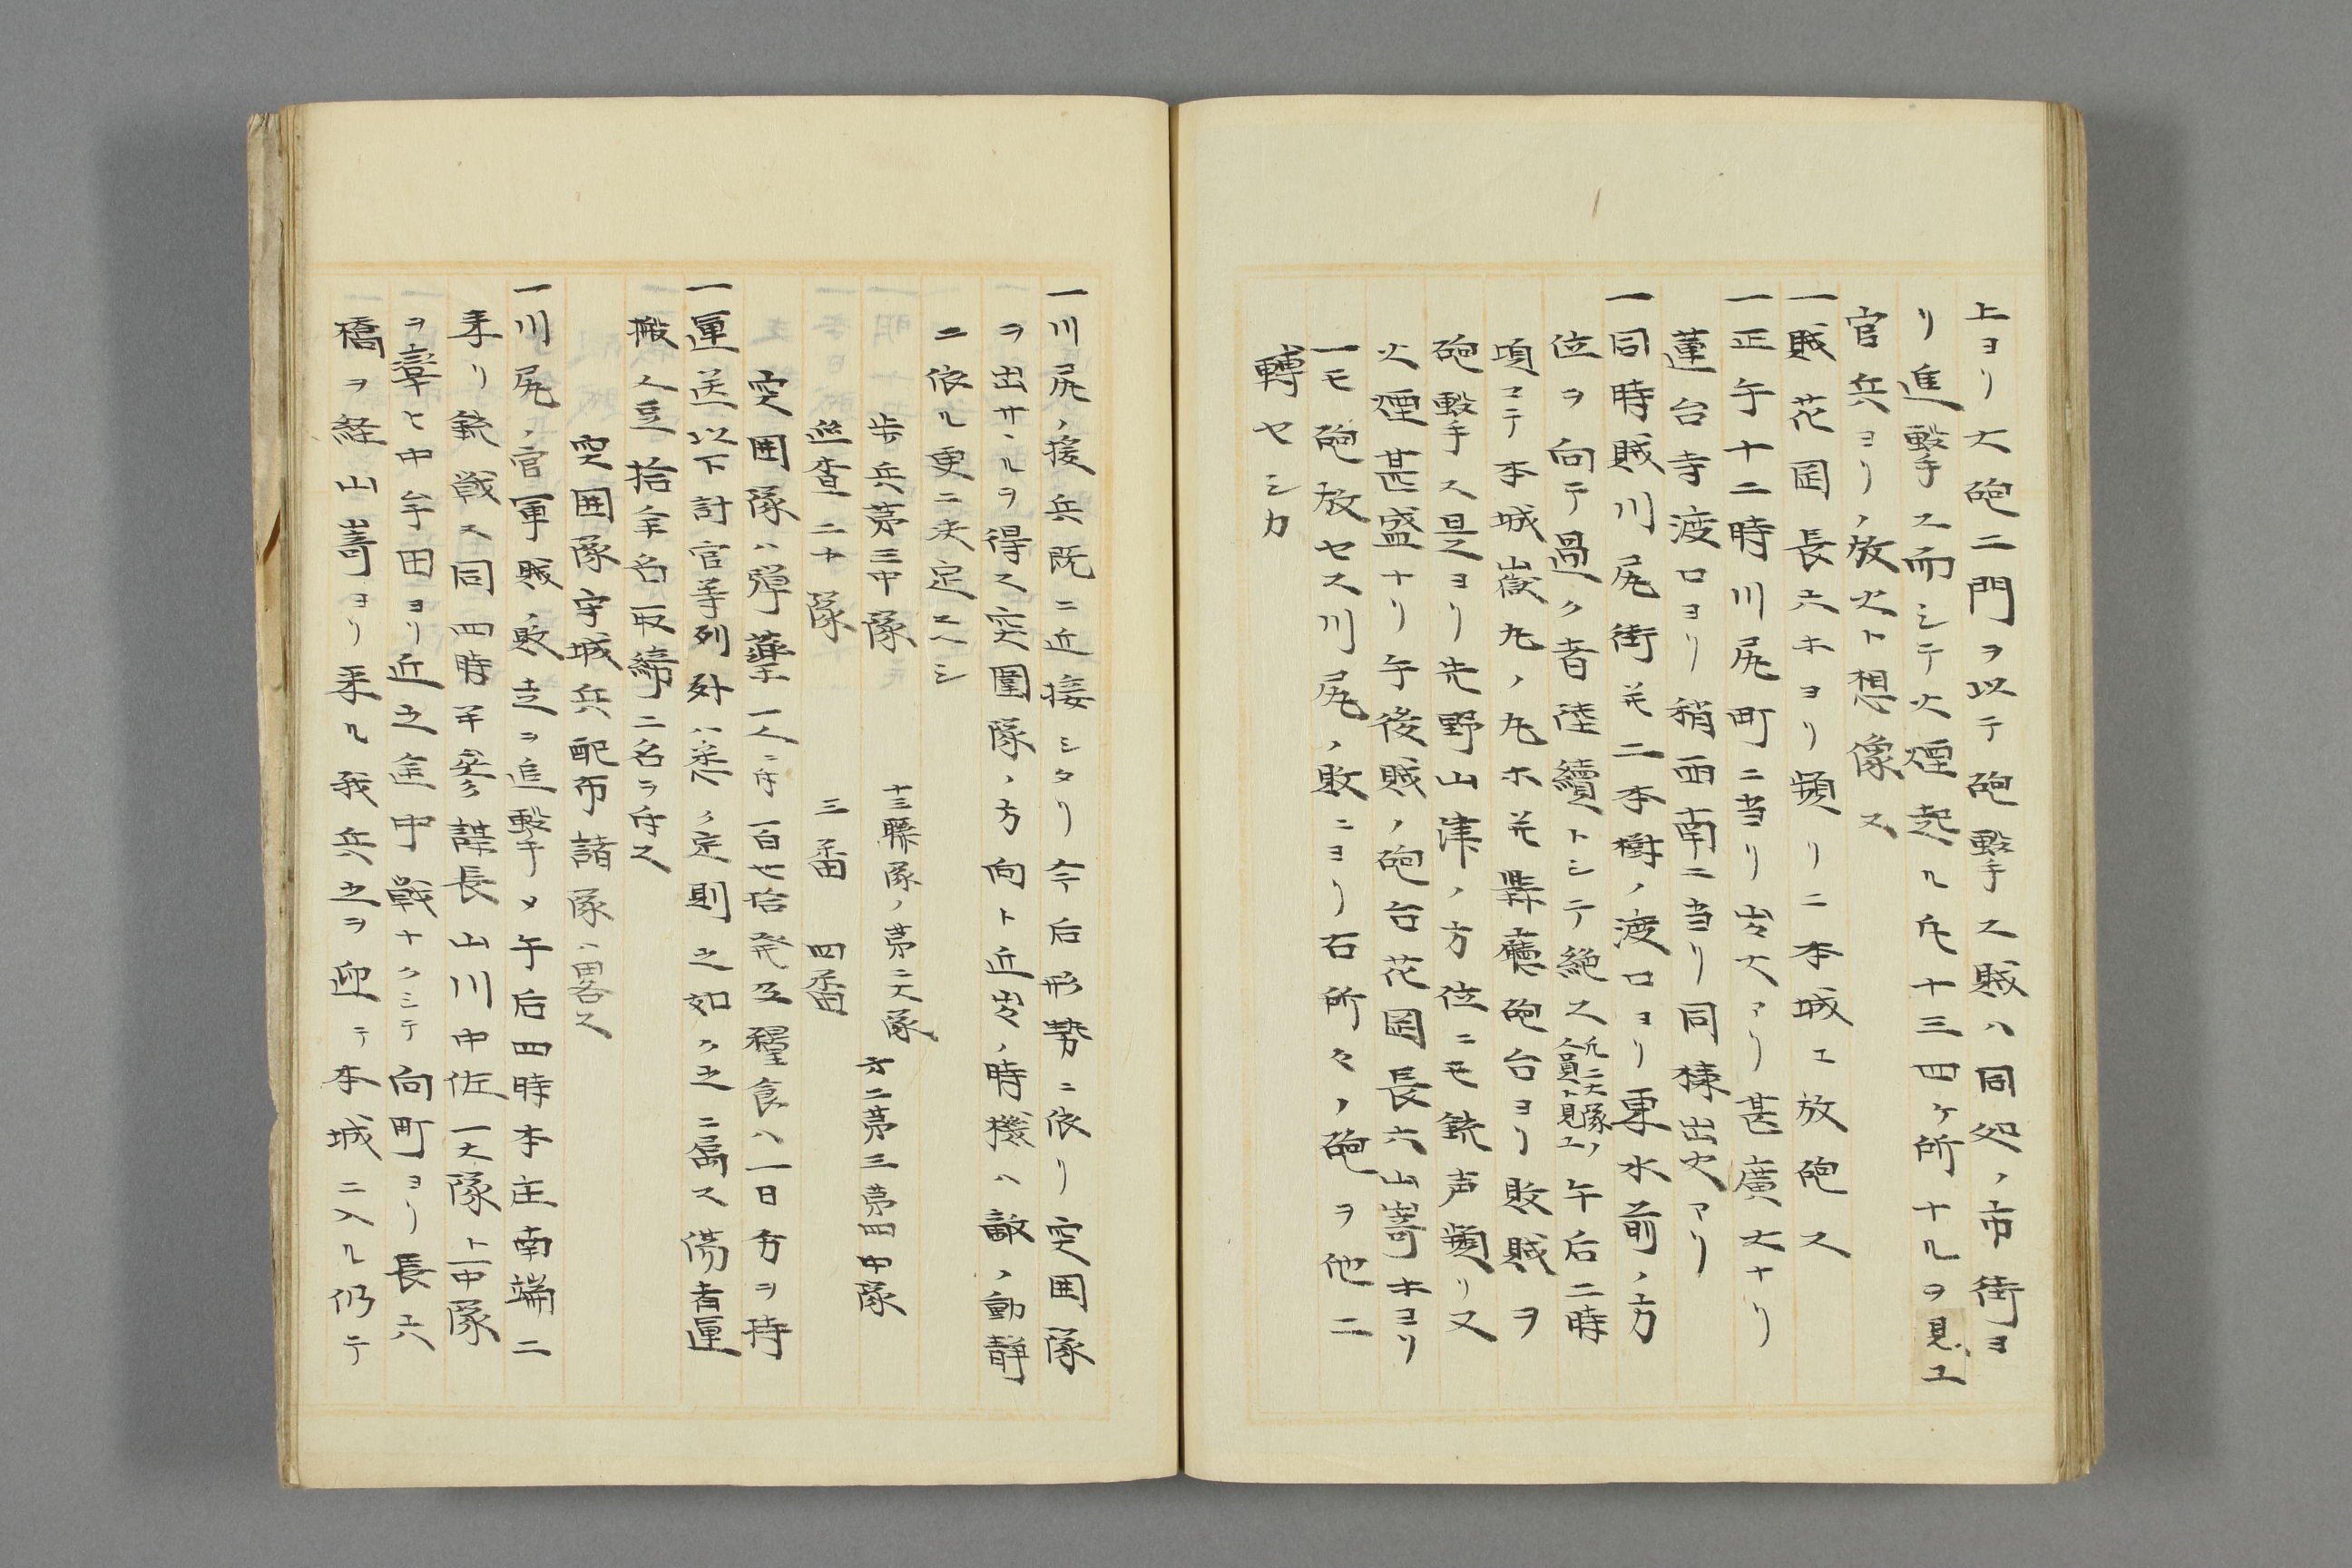 上ヨリ大砲二門ヲ以テ砲撃ス賊ハ同処ノ市街ヨ
リ進撃ス而シテ火煙起ル凡十三四ケ所ナルヲ見ユ
官兵ヨリノ放火ト想像ス
一賊花園長六ホヨリ頻リニ本城エ放砲ス
一正午十二時川尻町ニ当リ出火アリ甚廣大ナリ
蓮台寺渡口ヨリ稍西南ニ当リ同様出火アリ
一同時賊川尻街并二本樹ノ渡口ヨリ軍水前ノ方
位ヲ向テ過ク者陸續トシテ絶ス凡二大隊ノ人員ト見エ午后二時
頃コテ本城嶽丸ノ丸ホ并櫜廰砲台ヨリ敗賊ヲ
砲撃ス是ヨリ先野山津ノ方位ニモ銃声頻リ又
火煙甚盛ナリ午後賊ノ砲台花園長六山嵜ホヨリ
一モ砲放セス川尻ノ敗ニヨリ右所々ノ砲ヲ他ニ
轉セシカ
一川尻ノ援兵既ニ近接シタリ今后形勢ニ依リ突囲隊
ヲ出サヽルヲ得ス突圍隊ノ方向ト近出ノ時機ハ敵ノ動静
ニ依ル更ニ决定スヘシ
歩兵第三中隊 十三聯隊ノ第二大隊 第二第三第四中隊
巡査二中隊 三番 四番
突囲隊ハ弾薬一人ニ付一百七拾発互糧食ハ一日分ヲ持
一運送以下計官等列外ハ悉ク定則之如ク之ニ属ス傷者運
搬人互拾余名取締二名ヲ付ス
突囲隊守城兵配布諸隊ハ畧ス
一川尻ノ官軍賊ノ敗走ヲ追撃メ午后四時本庄南端ニ
来リ銃戦ス同四時半参謀長山川中佐一大隊ト一中隊
ヲ率ヒ中牟田ヨリ近之進中戦ナクシテ向町ヨリ長六
橋ヲ経山嵜ヨリ来ル我兵之ヲ迎テ本城ニ入ル仍テ